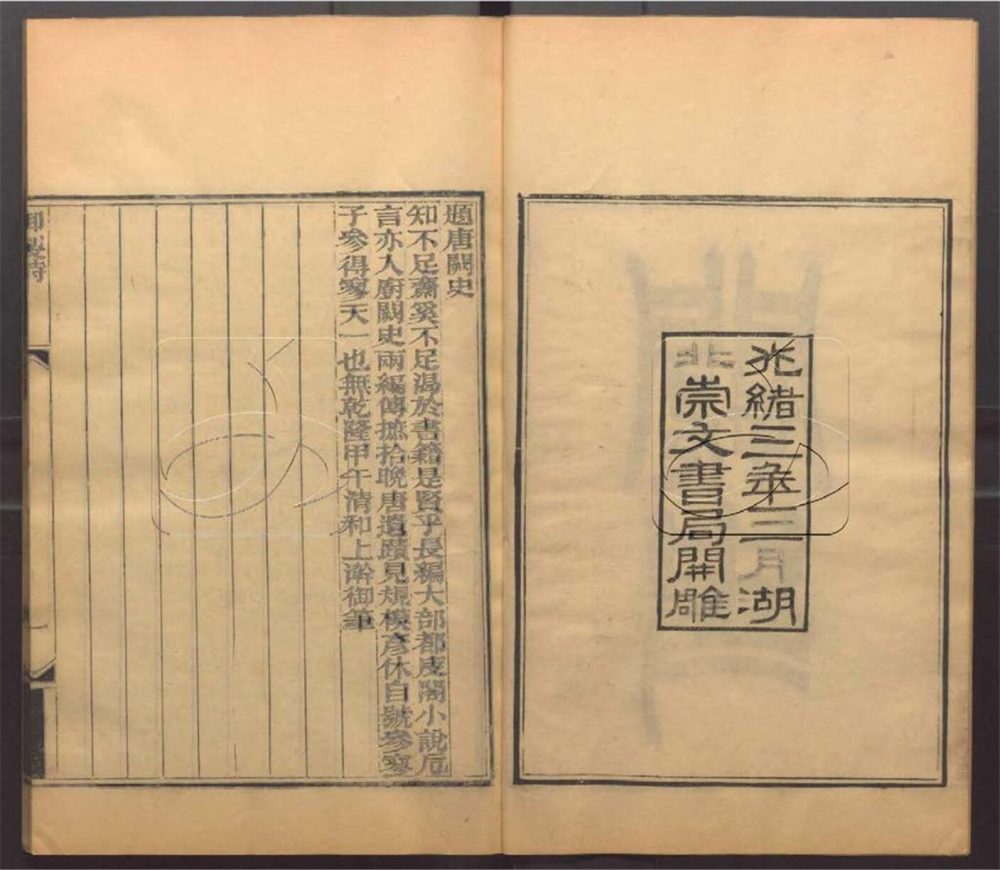 光緒三年三月湖
北崇文書局開雕
題唐闕史
知不足齋奚不足渴於書籍是賢乎長編大部都庋閣小說卮
言亦入廚闕史兩編傳摭拾晚唐遺蹟見規模彥休自號參寥
子參得寥天一也無乾隆甲午清和上澣御筆